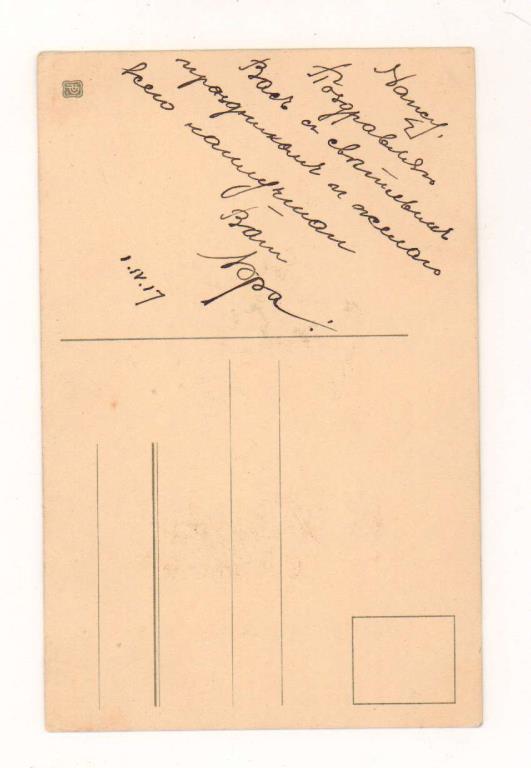 Поздравляю
Васъ съ свѣтлымъ
праздникомъ и желаю
всего наилучшаго
Ваш
1.IV.17